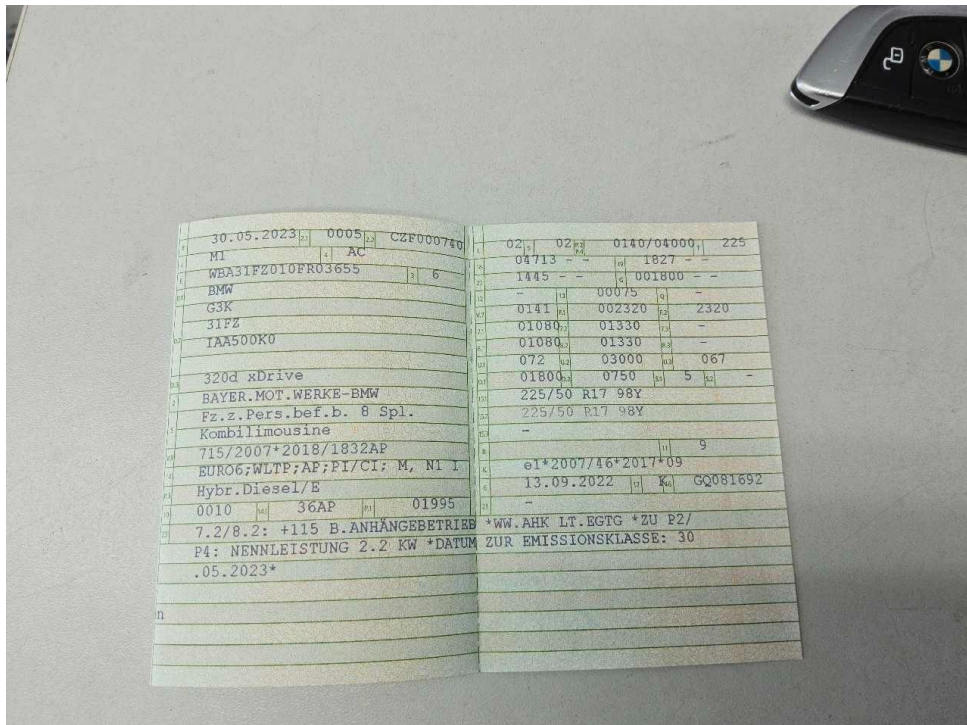 30.05.2023 2.1 0005 2.2 CZF000740
M1 4 AC
WBA31FZ010FR03655 3 6
BMW
G3K
31FZ
IAA500K0
320d xDrive
BAYER.MOT.WERKE-BMW
Fz.z.Pers.bef.b. 8 Spl.
Kombilimousine
715/2007*2018/1832AP
EURO6;WLTP;AP;PI/CI; M, N1 I
Hybr.Diesel/E
0010 36AP P.1 01995
02 9 02 P.2 P.4 0140/04000 T 225
04713 - - 19 1827 - -
1445 - - G 001800 - -
- 13 00075 Q -
0141 F.1 002320 F.2 2320
01080 7.2 01330 7.3 -
01080 8.2 01330 8.3 -
072 U.2 03000 U.3 067
01800 O.2 0750 S.1 5 S.2 -
225/50 R17 98Y
225/50 R17 98Y
-
11 9
e1*2007/46*2017*09
13.09.2022 17 K 16 GQ081692
-
7.2/8.2: +115 B.ANHÄNGEBETRIEB *WW.AHK LT.EGTG *ZU P2/
P4: NENNLEISTUNG 2.2 KW *DATUM ZUR EMISSIONSKLASSE: 30
.05.2023*